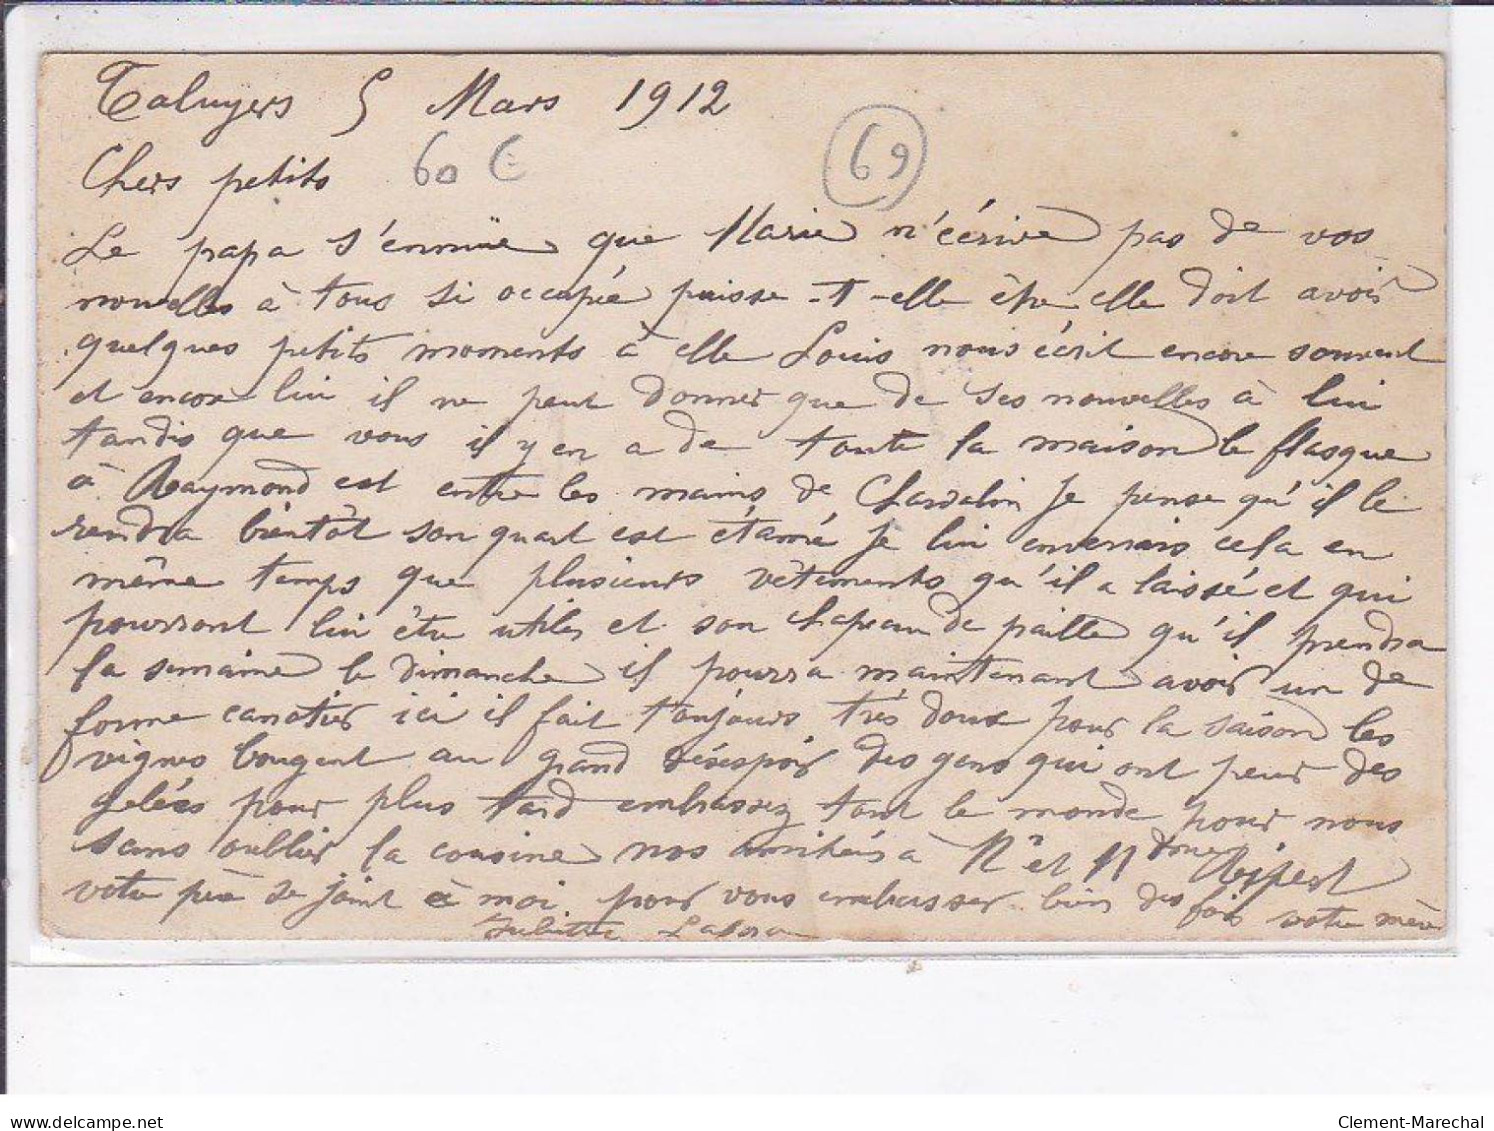 Taluyers 5 Mars 1912
Chers petits 60 € 69
Le papa s'ennuïe que Marie n'écrive pas de vos
nouvelles à tous si occupée puisse-t-elle être elle doit avoir
quelques petits moments à elle Louis nous écrit encore souvent
et encore lui il ne peut donner que de ses nouvelles à lui
tandis que vous il y en a de toute la maison le flasque
à Raymond est entre les mains de Chardelin je pense qu'il le
rendra bientôt son quart est étamé je lui enverrais cela en
même temps que plusieurs vêtements qu'il a laissé et qui
pourront lui être utiles et son chapeau de paille qu'il prendra
la semaine le dimanche il pourra maintenant avoir un de
forme canotier ici il fait toujours très doux pour la saison les
vignes bougent au grand désespoir des gens qui ont peur des
gelées pour plus tard embrassez tout le monde pour nous
sans oublier la cousine nos amitiés à Mr et M
votre père se joint à moi pour vous embrasser bien des fois votre mère
delcampe.net
Clement-Marechal